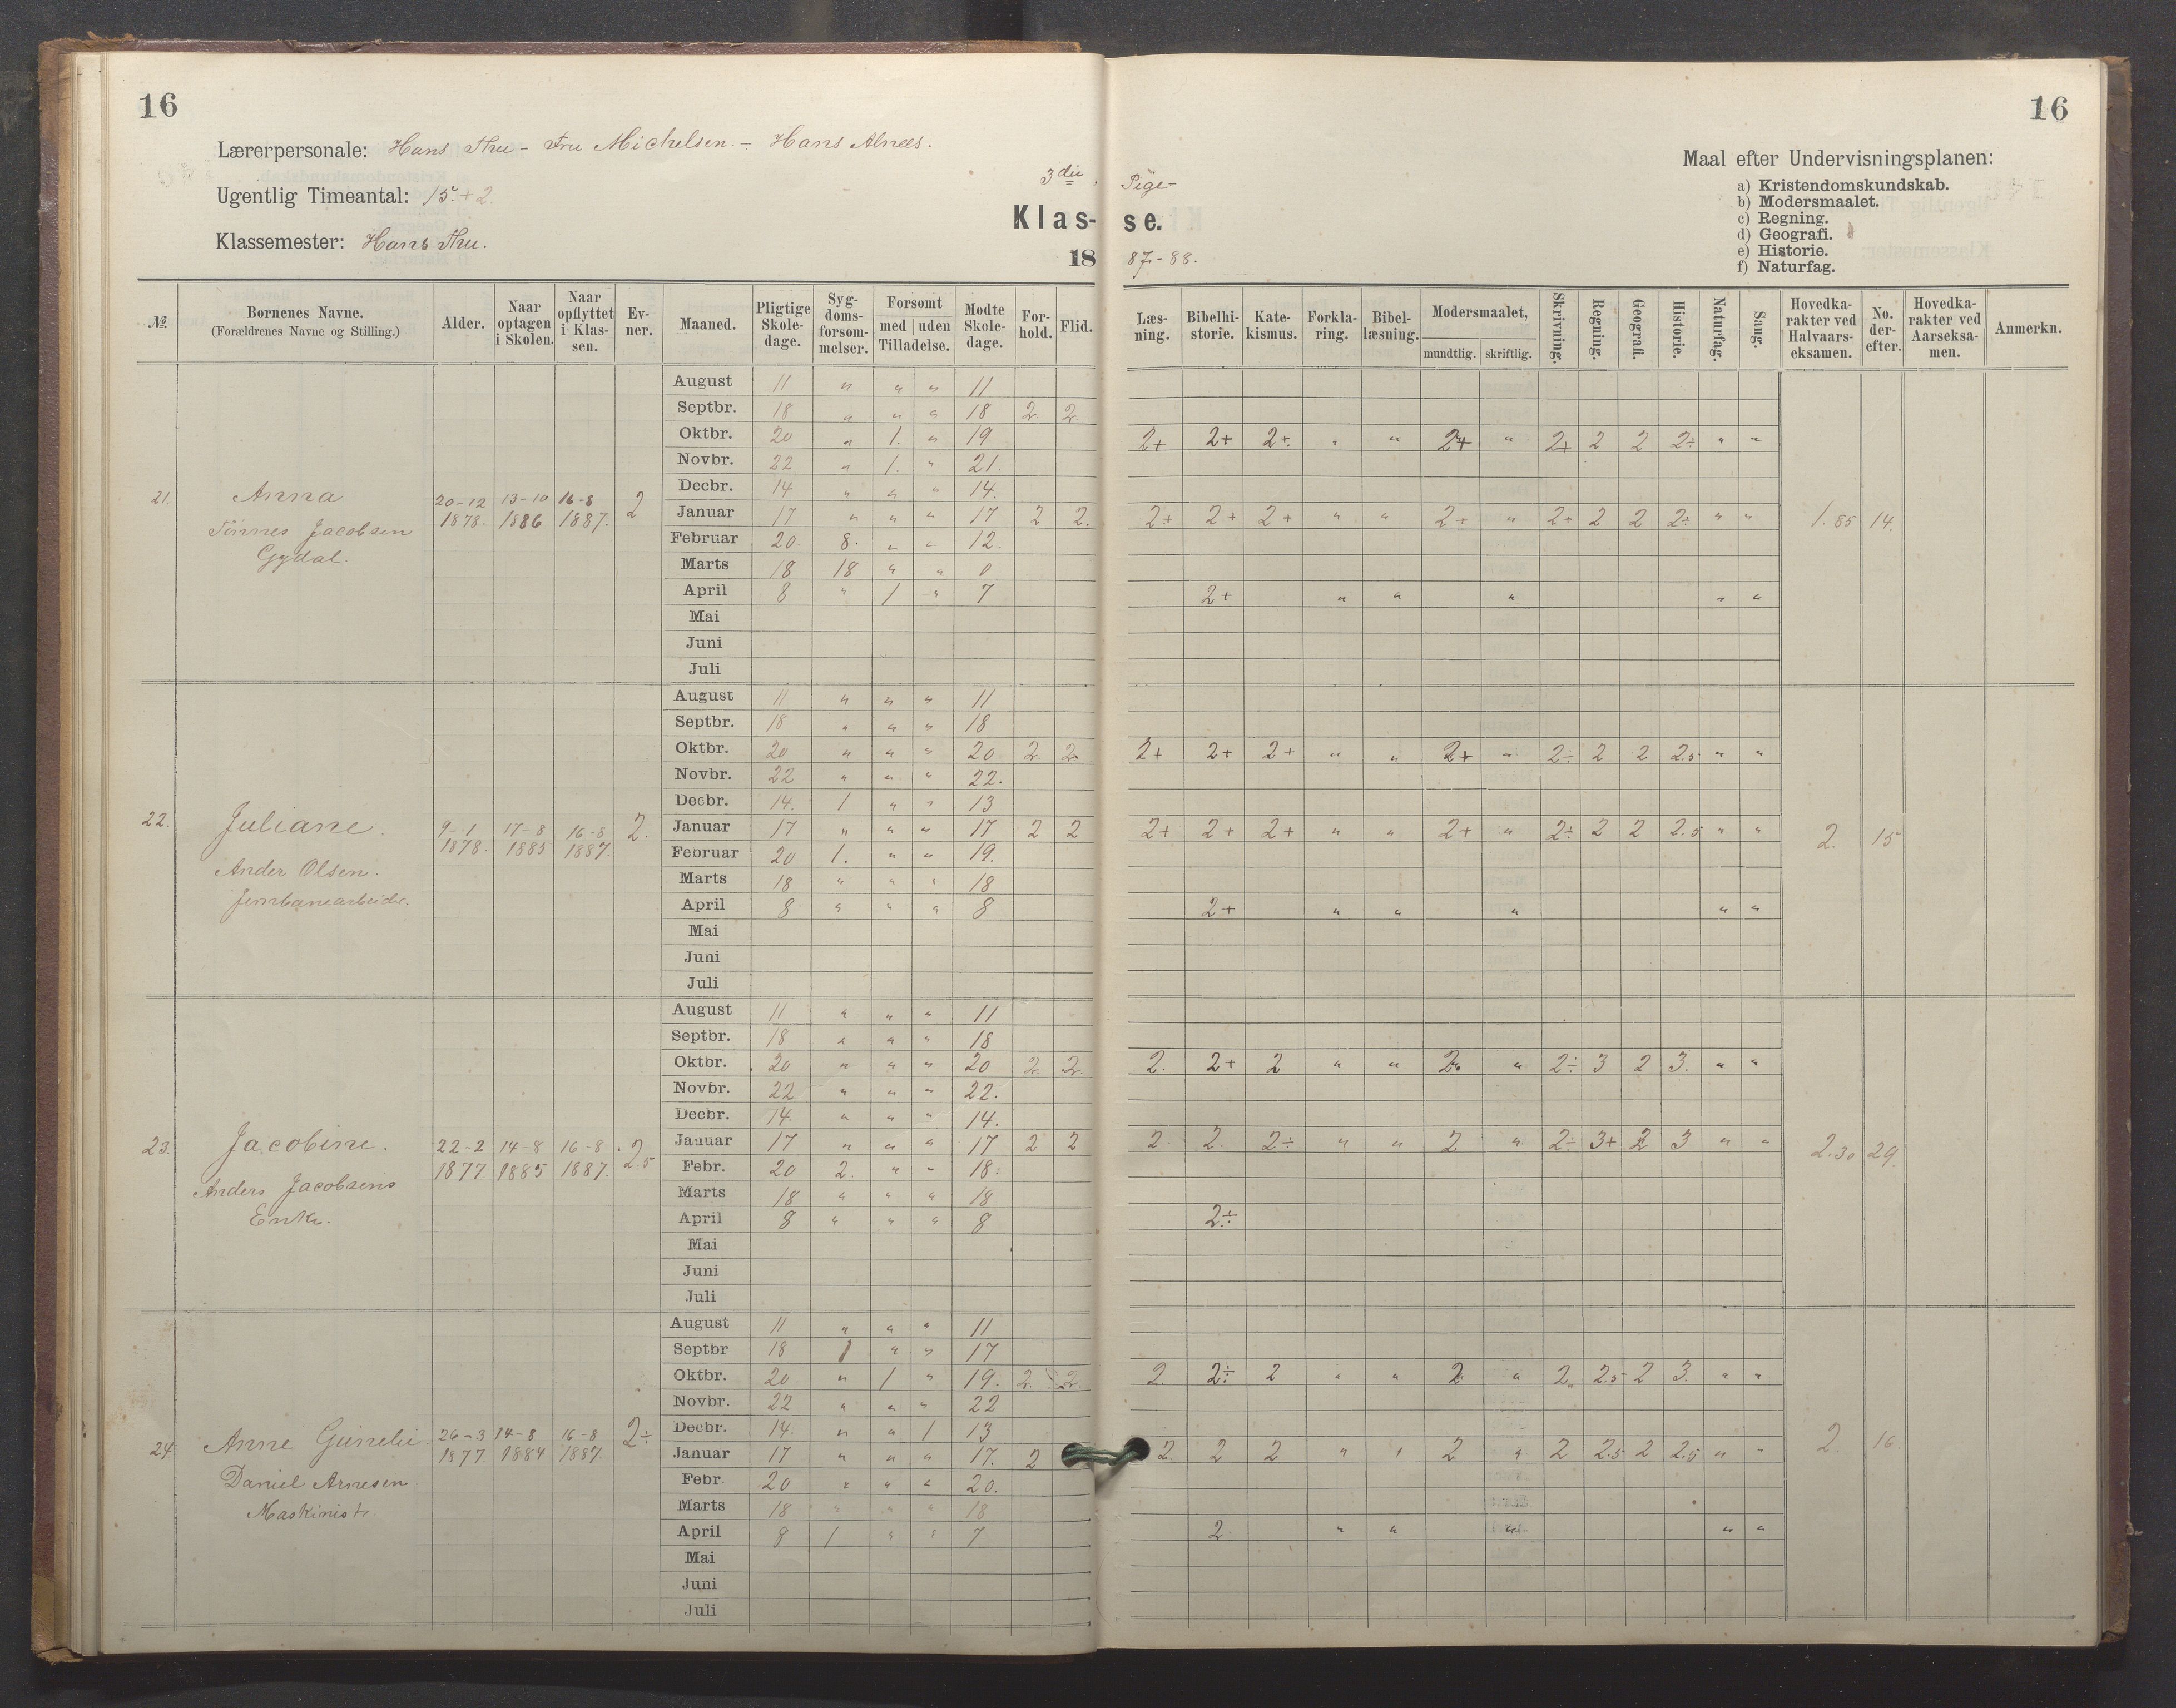 16
16
Lærerpersonale: Hans Thu - Fru Michelsen. - Hans Alnees.
Ugentlig Timeantal: 15 + 2.
Klassemester: Hans Thu.
3die Pige-
Klas- se.
18 87-88.
Maal efter Undervisningsplanen:
a) Kristendomskundskab.
b) Modersmaalet.
c) Regning.
d) Geografi.
e) Historie.
f) Naturfag.
№ Børnenes Navne. (Forældrenes Navne og Stilling.) Alder. Naar optagen i Skolen. Naar opflyttet i Klassen. Evner. Maaned. Pligtige Skoledage. Sygdomsforsommelser. Forsømt med uden Tilladelse. Mødte Skoledage. Forhold. Flid. Læsning. Bibelhistorie. Katekismus. Forklaring. Bibellæsning. Modersmaalet, mundtlig. skriftlig. Skrivning. Regning. Geografi. Historie. Naturfag. Sang. Hovedkarakter ved Halvaarseksamen. No. derefter. Hovedkarakter ved Aarseksamen. Anmerkn.
21. Anna
Tønnes Jacobsen
Gydal.
20-12 1878. 13-10 1886 16-8 1887. 2
August 11 " " " 11
Septbr. 18 " " " 18 2. 2.
Oktbr. 20 " 1. " 19 2+ 2+ 2+. " " 2+ " 2+ 2 2 2÷ " "
Novbr. 22 " 1. " 21.
Decbr. 14 " " " 14.
Januar 17 " " " 17 2 2. 2+ 2+ 2+ " " 2+ " 2+ 2 2 2÷ " " 1.85 14.
Februar 20. 8. " " 12.
Marts 18 18 " " 0
April 8 " 1 " 7 2+ " " " " "
Mai
Juni
Juli
22. Juliane.
Ander Olsen.
Jernbanearbeider.
9-1 1878. 17-8 1885 16-8 1887. 2.
August 11 " " " 11
Septbr. 18 " " " 18
Oktbr. 20 " " " 20 2. 2. 2+ 2+ 2+ " " 2+ " 2÷ 2 2 2.5 " "
Novbr. 22 " " " 22.
Decbr. 14. 1 " " 13
Januar 17 " " " 17 2 2 2+ 2+ 2+ " " 2+ " 2÷ 2 2 2.5 " " 2. 15
Februar 20 1. " " 19.
Marts 18 " " " 18
April 8 " " " 8 2+ " " " " "
Mai
Juni
Juli
23. Jacobine.
Anders Jacobsens
Enke.
22-2 1877 14-8 1885 16-8 1887. 2.5
August 11 " " " 11
Septbr. 18 " " " 18
Oktbr. 20 " " " 20 2. 2. 2. 2+ 2 " " 2. " 2÷ 3 2 3. " "
Novbr. 22 " " " 22.
Decbr. 14. " " " 14.
Januar 17 " " " 17 2 2 2. 2. 2÷ " " 2 " 2÷ 3+ 2 3 " " 2.30 29.
Febr. 20 2. " " 18.
Marts 18 " " " 18
April 8 " " " 8 2÷
Mai
Juni
Juli
24. Anne Gunelie
Daniel Arnesen.
Maskinist.
26-3 1877 14-8 1884 16-8 1887. 2÷
August 11 " " " 11
Septbr 18 1 " " 17
Oktbr. 20 " 1 " 19. 2. 2. 2. 2÷ 2 " " 2 " 2. 2.5 2 3. " "
Novbr. 22 " " " 22
Decbr. 14. " " 1 13
Januar 17 " " " 17. 2 2. 2 2 " " 2 " 2 2.5 2 2.5 " " 2. 16
Febr. 20 " " " 20.
Marts 18 " " " 18
April 8 1 " " 7 2 " " " " "
Mai
Juni
Juli